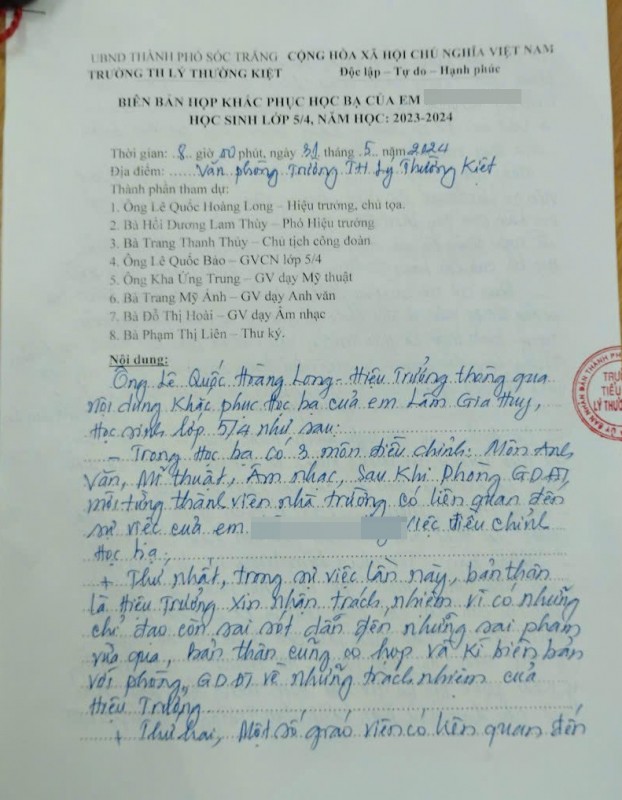 UBND THÀNH PHỐ SÓC TRĂNG CỘNG HÒA XÃ HỘI CHỦ NGHĨA VIỆT NAM
TRƯỜNG TH LÝ THƯỜNG KIỆT Độc lập – Tự do – Hạnh phúc
BIÊN BẢN HỌP KHẮC PHỤC HỌC BẠ CỦA EM
HỌC SINH LỚP 5/4, NĂM HỌC: 2023-2024
Thời gian: 8 giờ 00 phút, ngày 31 tháng 5 năm 2024
Địa điểm: Văn phòng Trường TH Lý Thường Kiệt
Thành phần tham dự:
1. Ông Lê Quốc Hoàng Long – Hiệu trưởng, chủ tọa.
2. Bà Hồi Dương Lam Thùy – Phó Hiệu trưởng
3. Bà Trang Thanh Thủy – Chủ tịch công đoàn
4. Ông Lê Quốc Bảo – GVCN lớp 5/4
5. Ông Kha Ứng Trung – GV dạy Mỹ thuật
6. Bà Trang Mỹ Ảnh – GV dạy Anh văn
7. Bà Đỗ Thị Hoài – GV dạy Âm nhạc
8. Bà Phạm Thị Liên – Thư ký.
Nội dung:
Ông Lê Quốc Hoàng Long - Hiệu Trưởng thông qua
nội dung khắc phục học bạ của em Lâm Gia Huy,
học sinh lớp 5/4 như sau:
- Trong học bạ có 3 môn điều chỉnh: Môn Anh
Văn, Mĩ thuật, Âm nhạc, Sau khi phòng GDĐT
mời từng thành viên nhà trường có liên quan đến
sự việc của em việc điều chỉnh
học bạ.
+ Thứ nhất, trong sự việc lần này, bản thân
là Hiệu Trưởng xin nhận trách nhiệm vì có những
chỉ đạo còn sai sót dẫn đến những sai phạm
vừa qua, bản thân cũng có họp và kí biên bản
với phòng GDĐT về những trách nhiệm của
Hiệu Trưởng
+ Thứ hai, Một số giáo viên có liên quan đến